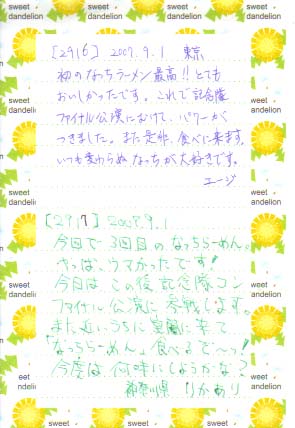 sweet dandelion
sweet dandelion
sweet dandelion
[2916] 2009.9.1 東京
初のなっちラーメン最高!! とても
おいしかったです。これで記念隊
ファイナル公演にむけて、パワーが
つきました。また是非、食べに来ます。
いつも変わらぬなっちが大好きです。
エージ
[2917] 2009.9.1
今回で3回目のなっちらーめん。
やっぱ、ウマかったです!
今日はこの後記念隊コン
ファイナル公演に参戦します。
また近いうちに
なっちらーめん食べるで〜っ!
今度は何味にしようかな?
神奈川県 りかあり
sweet dandelion
sweet dandelion
sweet dandelion
sweet dandelion
sweet
sweet
sweet